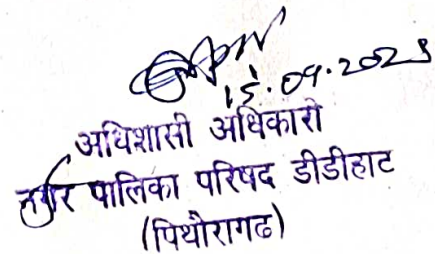 15.09.2025
अधिशासी अधिकारी
नगर पालिका परिषद डीडीहाट
(पिथौरागढ)